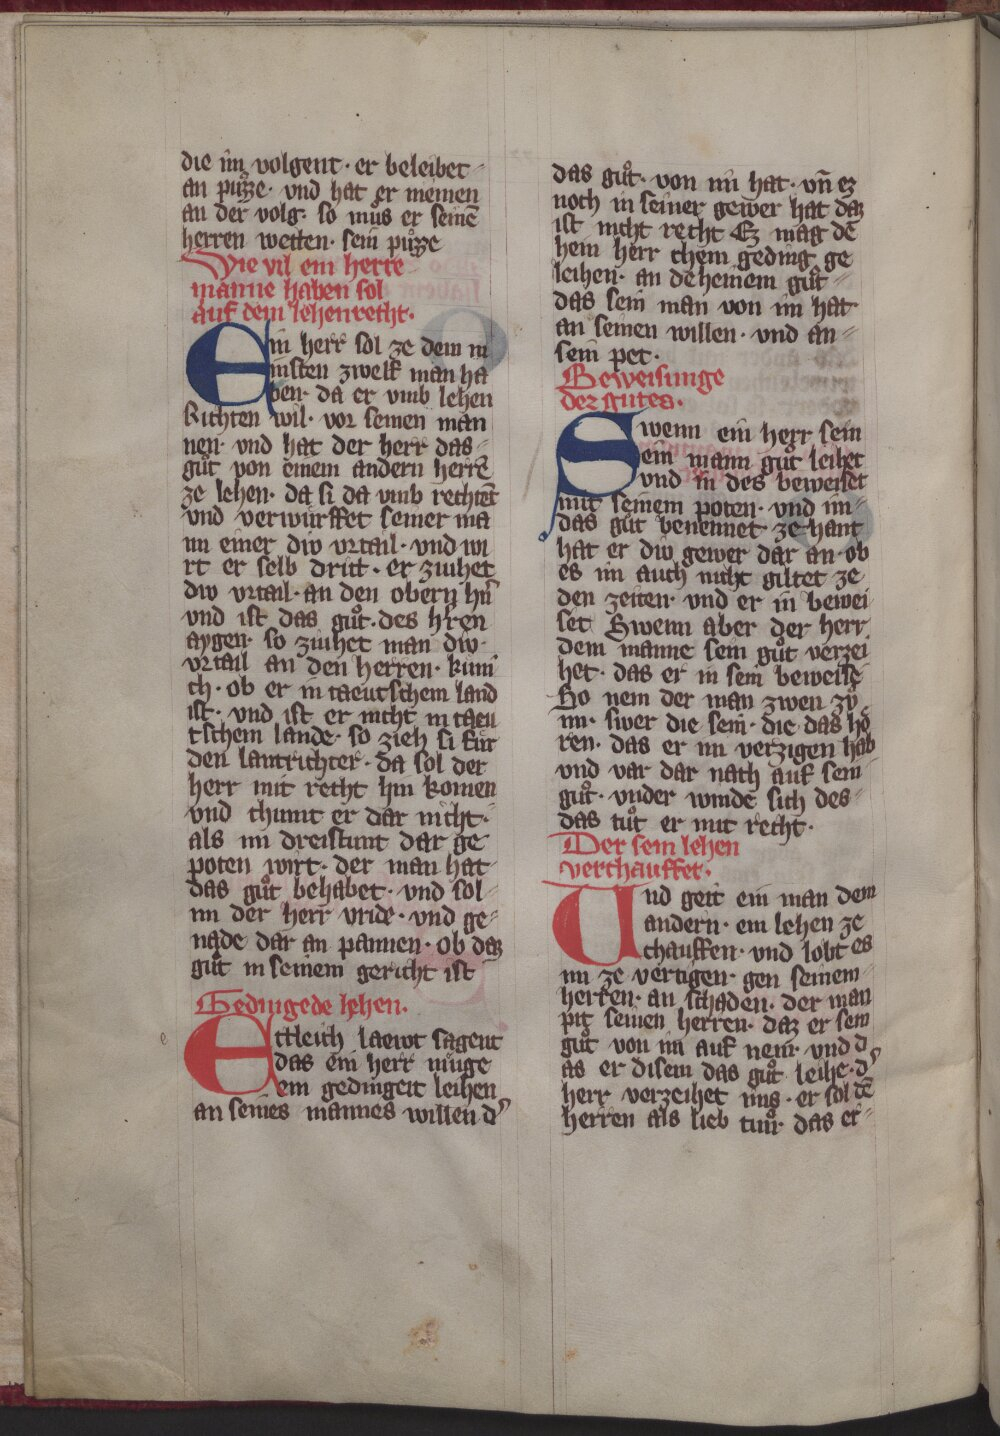 die im volgent · er beleibet
an pu̍zze · vnd hat er niemen
an der volg · so mu̍s er seinē
herren wetten · sein pu̍zze
Wie vil ein herre
manne haben sol
auf dem lehenrecht ·
Ein herr sol ze dem m
insten zwelf man ha
ben · da er vmb lehen
Richten wil · vor seinen man
nen · vnd hat der herr das
gůt von einem andern herrē
ze lehen · da si da vmb rechtēt
vnd verwurffet seiner ma
nn einer div vrtail · vnd wi
rt er selb dritt · er ziuhet
div vrtail · an den obern hñ
vnd ist das gůt · des h̄ren
aygen · so ziuhet man div
vrtail an den herren · kuni
ch · ob er in taeutschem land
ist · vnd ist er nicht in taeu
tschem lande · so zieh si fur
den lantrichter · da sol der
herr mit recht hin komen
vnd chumt er dar nicht ·
als im dreistunt dar ge
poten wirt · der man hat
das gůt behabet · vnd sol
im der herr vride · vnd ge
nade dar an pannen · ob daz
gůt in seinem gericht ist
Gedingede lehen ·
e
Ettleich laewt sagent
das ein herr muge
ein gedingeit leihen
an seines mannes willen d᾽
das gůt · von im hat · vn̄ ez
noch in seiner gewer hat daz
ist nicht recht Ez mag de
hein herr chein geding ge
leihen · an deheinem gůt
das sein man von im hat
an seinen willen · vnd an
sein pet ·
Beweisunge
dez gutes ·
Swenn ein herr sein
eim mann gůt leihet
vnd in des beweiset
mit seinem poten · vnd im
das gůt benennet ze hant
hat er div gewer dar an · ob
es im auch nicht giltet ze
den zeiten · vnd er in bewei
set Swenn aber der herr
dem manne sein gůt verzei
het · das er in sein beweise
So nem der man zwen zů
im · swer die sein · die das hŏ
ren · das er im verzigen hab
vnd var dar nach auf sein
gůt · vnder winde sich des
das tůt er mit recht ·
Der sein lehen
verchauffet ·
Vnd geit ein man dem
andern · ein lehen ze
chauffen · vnd lobt es
im ze vertigen · gen seinem
herren · an schaden · der man
pit seinen herren · daz er sein
gůt von im auf nem · vnd d
as er disem das gůt leihe · d᾽
herr verzeihet ims · er sol dē
herren als lieb tun · das er